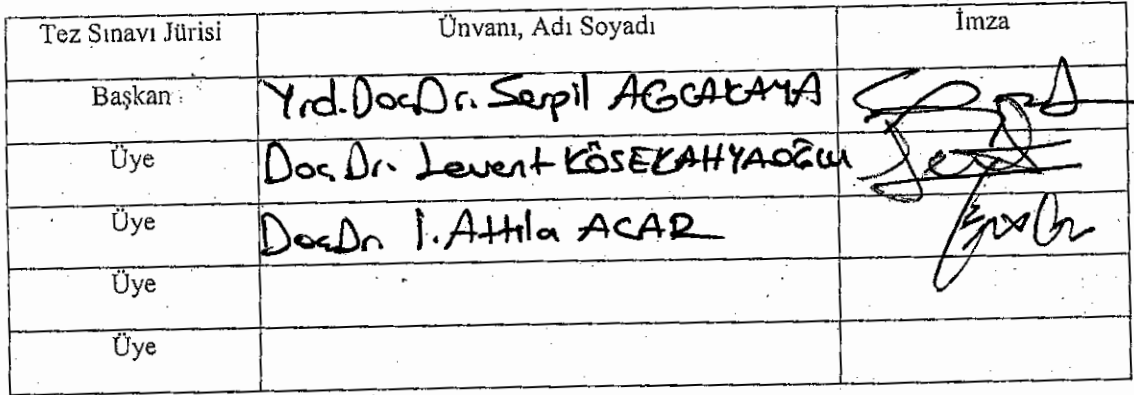 Tez Sınavı Jürisi Ünvanı, Adı Soyadı İmza
Başkan Yrd.Doç.Dr. Serpil AĞCAKAYA
Üye Doç.Dr. Levent KÖSEKAHYAOĞLU
Üye Doç.Dr. İ. Attila ACAR
Üye
Üye